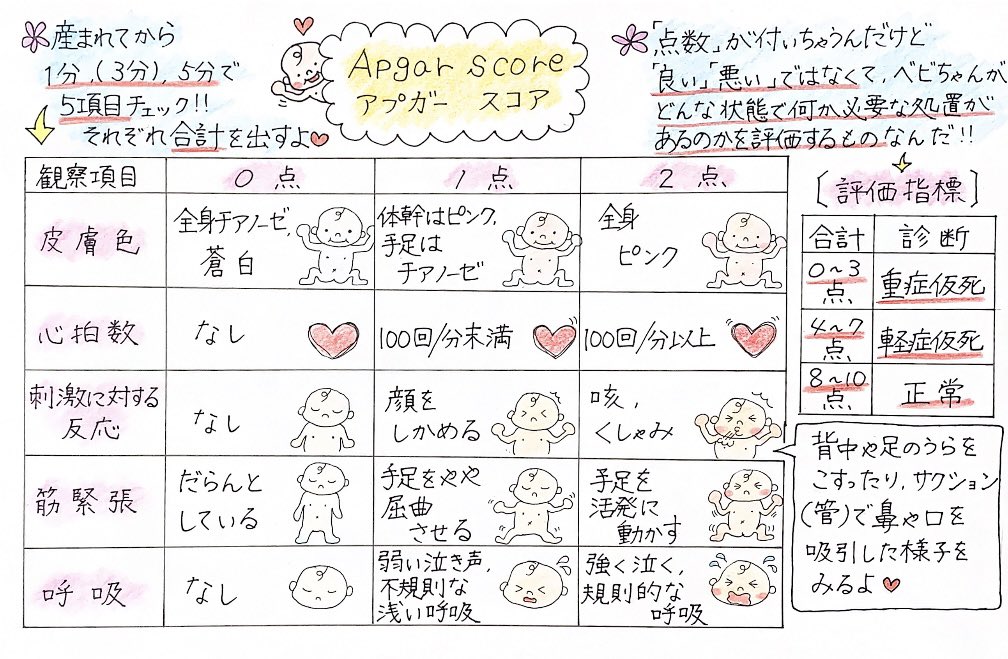 産まれてから
1分,(3分),5分で
5項目チェック!!
それぞれ合計を出すよ
Apgar score
アプガー スコア
「点数」が付いちゃうんだけど
「良い」「悪い」ではなくて,ベビちゃんが
どんな状態で何か必要な処置が
あるのかを評価するものなんだ!!
観察項目
0点
1点
2点
皮膚色
全身チアノーゼ,
蒼白
体幹はピンク,
手足は
チアノーゼ
全身
ピンク
心拍数
なし
100回/分未満
100回/分以上
刺激に対する
反応
なし
顔を
しかめる
咳,
くしゃみ
筋緊張
だらんと
している
手足をやや
屈曲
させる
手足を
活発に
動かす
呼吸
なし
弱い泣き声,
不規則な
浅い呼吸
強く泣く,
規則的な
呼吸
[評価指標]
合計
診断
0~3
点
重症仮死
4~7
点
軽症仮死
8~10
点
正常
背中や足のうらを
こすったり,サクション
(管)で鼻や口を
吸引した様子を
みるよ